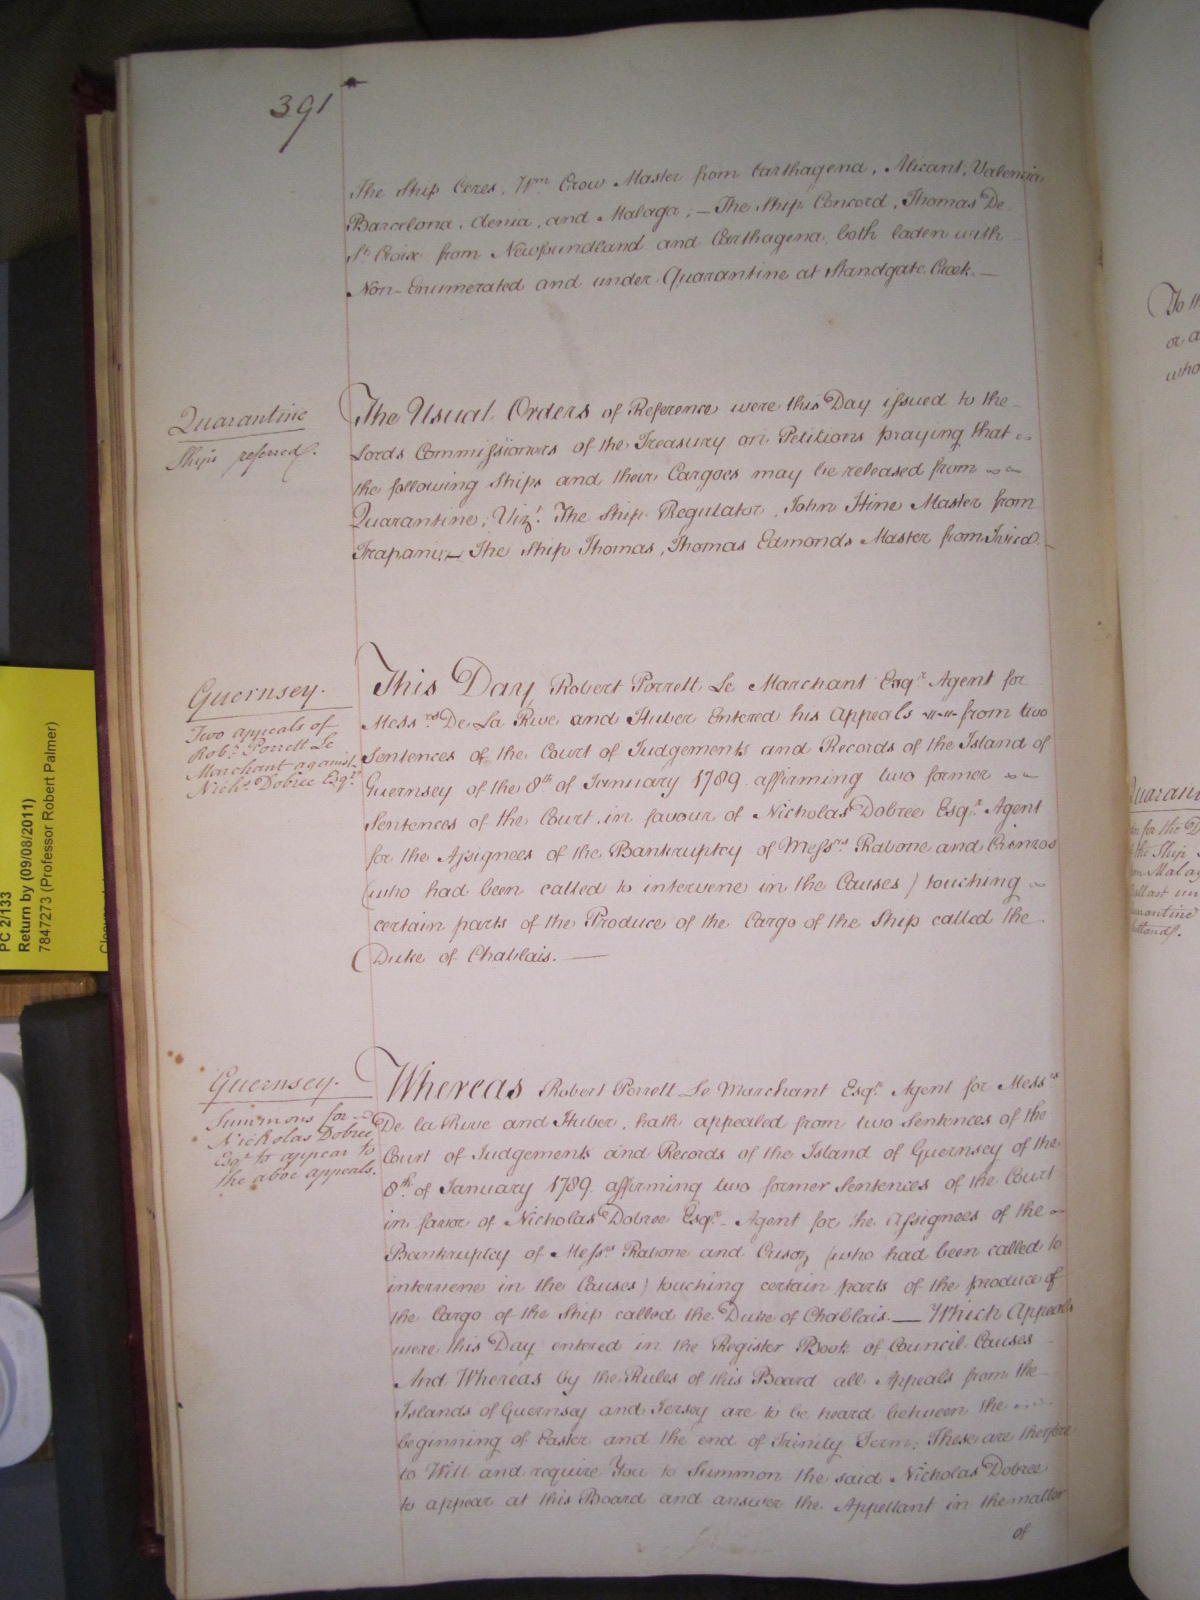 391
The Ship Ceres, Wm Crow Master from Carthagena, Alicant, Valencia
Barcelona, denia, and Malaga; — The Ship Concord, Thomas De
St Croix from Newfoundland and Carthagena, both laden with
Non-Enumerated and under Quarantine at Standgate Creek. —
Quarantine
Ships referred.
The Usual Orders of Reference were this Day issued to the
Lords Commissioners of the Treasury on Petitions praying that
the following Ships and their Cargoes may be released from
Quarantine, Vizt. The Ship Regulator, John Hine Master from
Trapani; — The Ship Thomas, Thomas Edmonds Master from Ivica. —
Guernsey.
Two appeals of
Robt. Porrett Le
Marchant against
Nichs. Dobree Esqr.
This Day Robert Porrett Le Marchant Esqr. Agent for
Messrs De La Rive and Huber Entered his Appeals from two
Sentences of the Court of Judgements and Records of the Island of
Guernsey of the 8th of January 1789 affirming two former
Sentences of the Court in favour of Nicholas Dobree Esqr. Agent
for the Assignees of the Bankruptcy of Messrs Rabone and
(who had been called to intervene in the Causes) touching
certain parts of the Produce of the Cargo of the Ship called the
Duke of Chablais. —
Guernsey.
Summons for
Nickolas Dobree
Esqr to appear to
the aboe appeals.
Whereas Robert Porrett Le Marchant Esqr. Agent for Messrs
De la Rive and Huber, hath appealed from two Sentences of the
Court of Judgements and Records of the Island of Guernsey of the
8th. of January 1789 affirming two former Sentences of the Court
in favor of Nicholas Dobree Esqr. Agent for the Assignees of the
Bankruptcy of Messrs Rabone and (who had been called to
intervene in the Causes) touching certain parts of the produce of
the Cargo of the Ship called the Duke of Chablais. — Which Appeals
were this Day entered in the Register Book of Council Causes
And Whereas by the Rules of this Board all Appeals from the
Islands of Guernsey and Jersey are to be heard between the
beginning of Easter and the end of Trinity Term: These are therefore
to Will and require You to Summon the said Nicholas Dobree
to appear at this Board and answer the Appellant in the matter
of
PC 2/133
Return by (09/08/2011)
7847273 (Professor Robert Palmer)
To th
or a
who